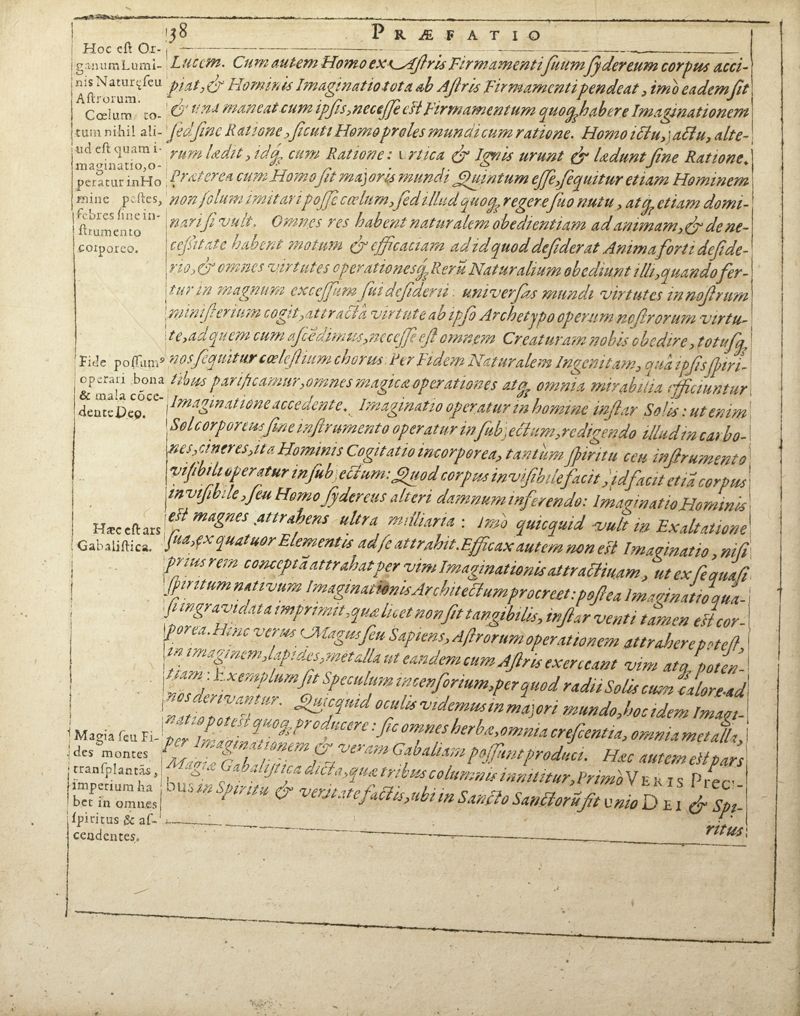 38
PRÆFATIO
Hoc eſt Or-
ganum Lumi-
nis Naturę ſeu
Aſtrorum.
Cœlum to-
tum nihil ali-
ud eſt quam i-
maginatio, o-
peratur in Ho
mine peſtes,
febres ſine in-
ſtrumento
corporeo.
Fide poſſumꝰ
operari bona
& mala cōce-
dente Deo.
Hæc eſt ars
Gabaliſtica.
Magia ſeu Fi-
des montes
tranſplantās,
imperium ha
bet in omnes
ſpiritus & aſ-
cendentes.
Lucem. Cum autem Homo ex Aſtris Firmamenti ſuum ſydereum corpus acci-
piat, & Hominis Imaginatio tota ab Aſtris Firmamenti pendeat, imò eadem ſit
& una maneat cum ipſis, neceſſe eſt Firmamentum quoq; habere Imaginationem
ſed ſine Ratione, ſicuti Homo proles mundi cum ratione. Homo ictu, jactu, alte-
rum lædit, idq; cum Ratione: Urtica & Ignis urunt & lædunt ſine Ratione.
Præterea cum Homo ſit majoris mundi Quintum eſſe, ſequitur etiam Hominem
non ſolum imitari poſſe cœlum, ſed illud quoq; regere ſuo nutu, atq; etiam domi-
nari ſi vult. Omnes res habent naturalem obedientiam ad animam, & de ne-
ceſſitate habent motum & efficaciam ad id quod deſiderat Anima forti deſide-
rio, & omnes virtutes operationesq; Rerū Naturalium obediunt illi, quando fer-
tur in magnum exceſſum ſui deſiderii: univerſas mundi virtutes in noſtrum
miniſterium cogit, attracta virtute ab ipſo Archetypo operum noſtrorum virtu-
te, ad quem cum aſcēdimus, neceſſe eſt omnem Creaturam nobis obedire, totuſq;
nos ſequitur cœleſtium chorus. Per Fidem Naturalem Ingenitam, quâ ipſis ſpiri-
tibus parificamur, omnes magicæ operationes atq; omnia mirabilia efficiuntur
Imaginatione accedente. Imaginatio operatur in homine inſtar Solis: ut enim
Sol corporeus ſine inſtrumento operatur in ſubjectum, redigendo illud in carbo-
nes, cineres, ita Hominis Cogitatio incorporea, tantùm ſpiritu ceu inſtrumento
viſibili operatur in ſubjectum: Quod corpus inviſibile facit, id facit etiā corpus
inviſibile, ſeu Homo ſydereus alteri damnum inferendo: Imaginatio Hominis
eſt magnes attrahens ultra milliaria: Imò quicquid vult in Exaltatione
ſua, ex quatuor Elementis ad ſe attrahit. Efficax autem non eſt Imaginatio, niſi
prius rem conceptā attrahat per vim Imaginationis attractiuam, ut ex ſe quaſi
ſpiritum nativum Imaginationis Architectum procreet: poſtea Imaginatio qua-
ſi ingravidata imprimit, quæ licet non ſit tangibilis, inſtar venti tamen eſt cor-
porea. Hinc verus Magus ſeu Sapiens, Aſtrorum operationem attrahere poteſt,
in imaginem, lapides, metalla ut eandem cum Aſtris exerceant vim atq; poten-
tiam: Exemplum ſit Speculum incenſorium, per quod radii Solis cum calore ad
nos derivantur. Quicquid oculis videmus in majori mundo, hoc idem Imagi-
natio poteſt quoq; producere: ſic omnes herbæ, omnia creſcentia, omnia metalla,
per Imaginationem & veram Gabaliam poſſunt produci. Hæc autem eſt pars
Magiæ Gabaliſtica dicta, quæ tribus columnis innititur, Primò VERIS Preci-
bus in Spiritu & veritate factis, ubi in Sancto Sanctorū fit unio DEI & Spi-
ritus